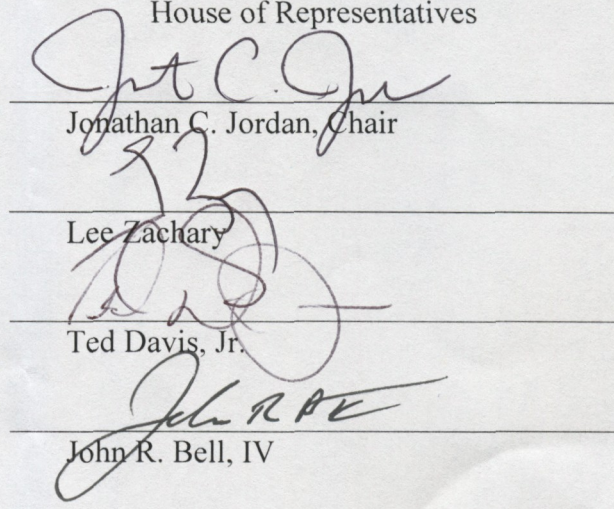 House of Representatives
Jonathan C. Jordan, Chair
Lee Zachary
Ted Davis, Jr.
John R. Bell, IV